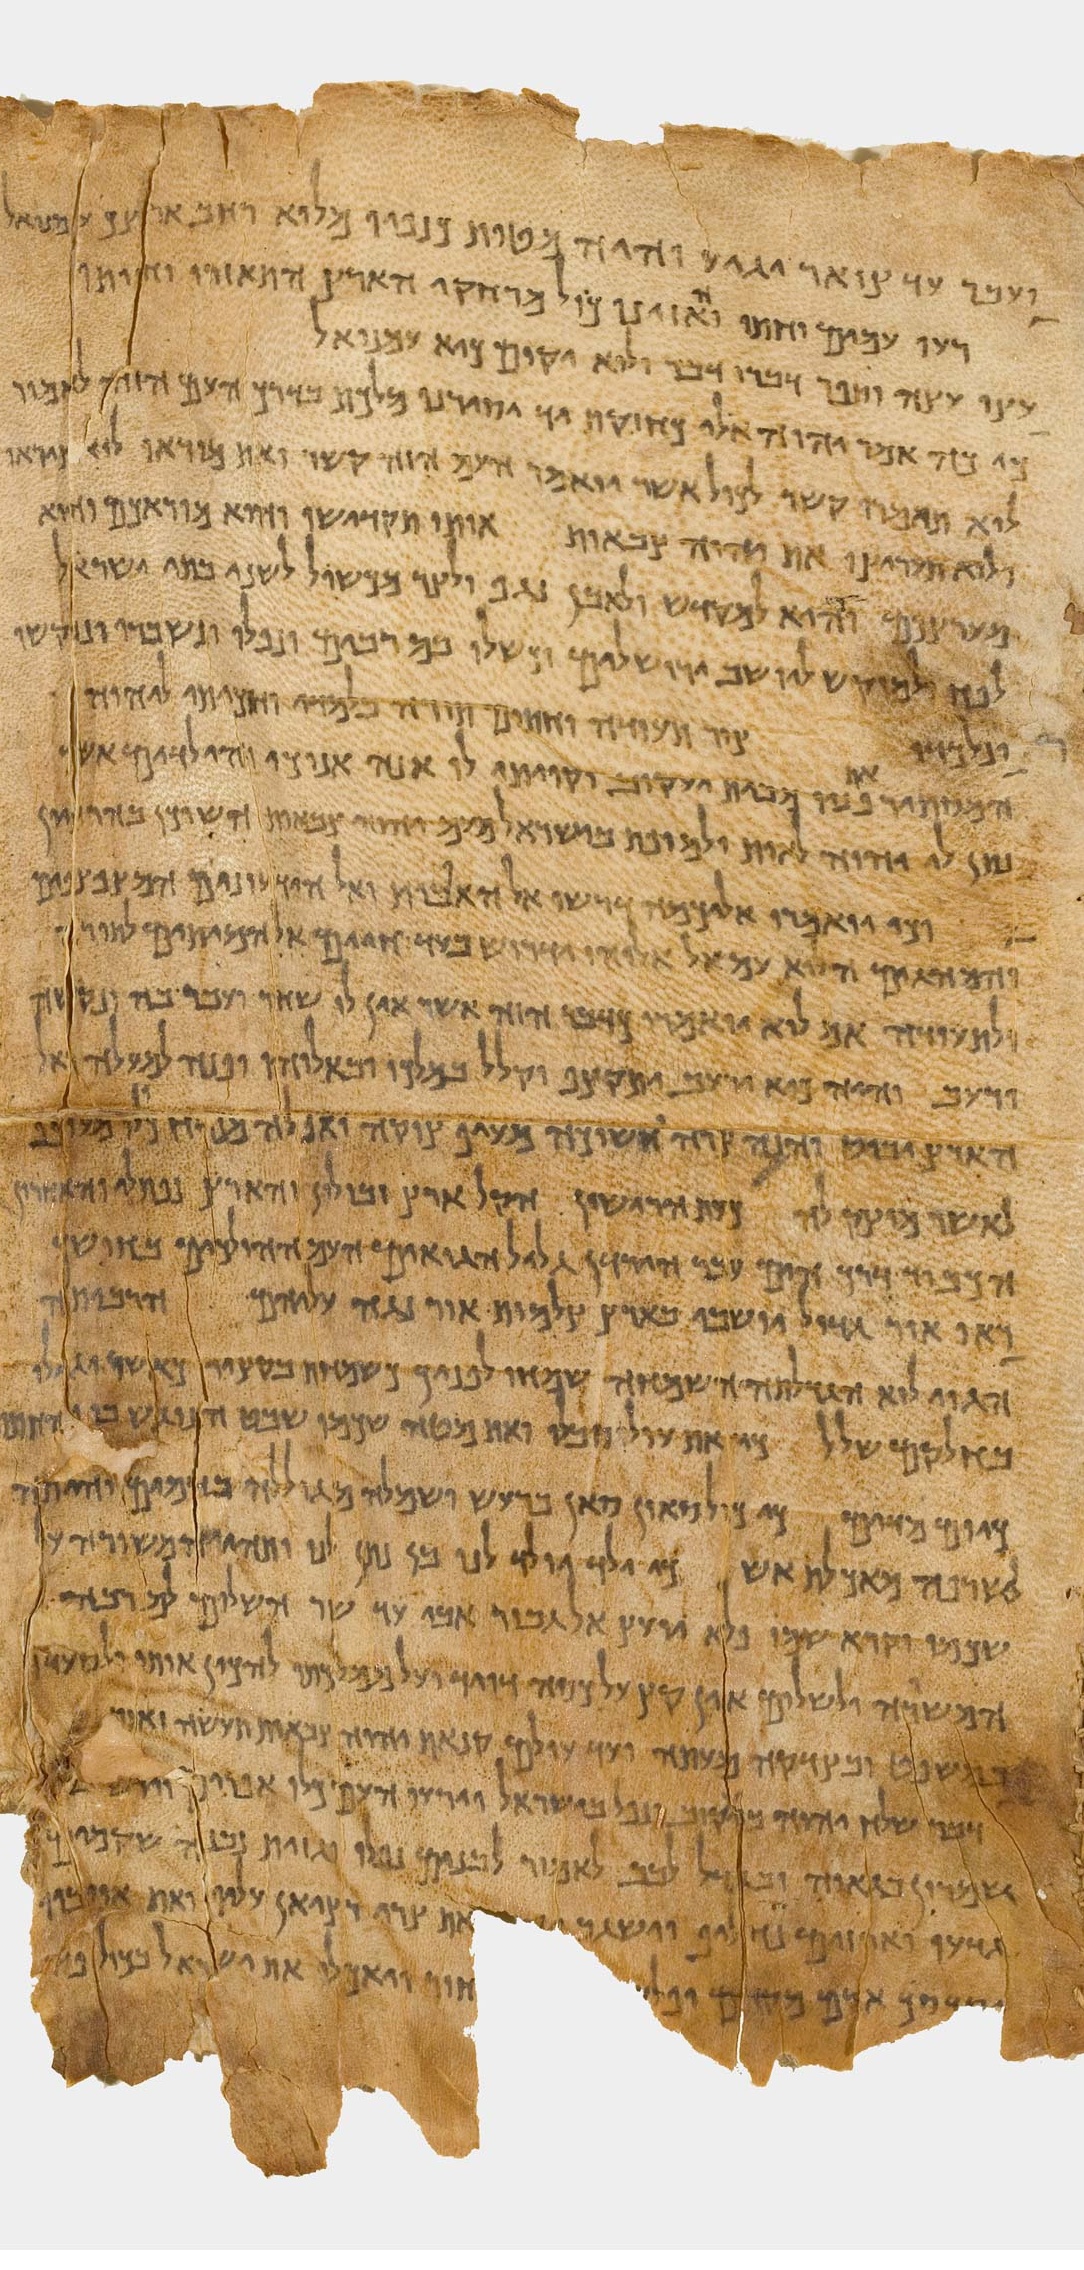 ועבר עד צואר יגיע והיה מטות כנפיו מלוא רחב ארצך עמנואל
רעו עמים וחתו והאזינו כול מרחקי הארץ התאזרו וחותו
עצו עצה ותפר דברו דבר ולוא יקום כיא עמנואל
כי כוה אמר יהוה אלי כחזקת יד יסירנו מלכת בדרך העם הזה לאמור
לוא תאמרו קשר לכול אשר יואמר העם הזה קשר ואת מוראו לוא תיראו
ולוא תעריצו את יהוה צבאות אותו תקדישו והוא מוראכם והוא
מערצכם והיה למקדש ולאבן נגף ולצור מכשול לשני בתי ישראל
לפח ולמוקש ליושב ירושלים וכשלו בם רבים ונפלו ונשברו ונוקשו
ונלכדו צור תעודה וחתום תורה בלמדי וחכיתי ליהוה
המסתיר את פניו מבית יעקוב וקויתי לו הנה אנוכי והילדים אשר
נתן לי יהוה לאות ולמופת בישראל מעם יהוה צבאות השוכן בהר ציון
וכי יואמרו אליכמה דרשו אל האבות ואל הידעונים המצפצפים
והמהגים הלוא עם אל אלוהיו ידרוש בעד החיים אל המיתים לתורה
ולתעודה אם לוא יואמרו כדבר הזה אשר אין לו שחר ועבר בה ונקשה
ורעב והיה כיא ירעב יתקצף וקלל במלכו ובאלוהיו ופנה למעלה ואל
הארץ יביט והנה צרה וחשוכה מעוף צוקה ואפלה
לאשר מוצק לה כעת הראישון הקל ארץ זבולון והארץ נפתלי והאחרון
הכביד דרך הים עבר הירדן גליל הגואים העם ההולכים בחושך
ראו אור גדול יושבי בארץ צלמות אור נגה עליהם הרביתה
הגוי לוא הגדלתה השמחה שמחו לפניך כשמחת בקציר כאשר יגילו
בחלקם שלל כי את עול סבלו ואת מטה שכמו שבט הנוגש בו החתות
כיום מדים כי כול סאון סאן ברעש ושמלה מגוללה בדמים והיתה
לשרפה מאכלת אש כי ילד יולד לנו בן נתן לנו ותהי המשורה על
שכמו וקרא שמו פלא יועץ אל גבור אבי עד שר השלום לםרבה
המשרה ולשלום אין קץ על כסה דויד ועל ממלכתו להכין אותו ולסעדו
במשפט ובצדקה מעתה ועד עולם קנאת יהוה צבאות תעשה זואת
דבר שלח יהוה ביעקוב ונפל בישראל וירעו העם כולו אפרים
שמרון בגאוה ובגדל לבב לאמור לבנים נפלו וגזית נבנה שקמים
גדעו וארזים נחליף וישגב את צרי רציאן עליו ואת אויביו
ארם מקדם אחור ויאכלו את ישראל בכול פה